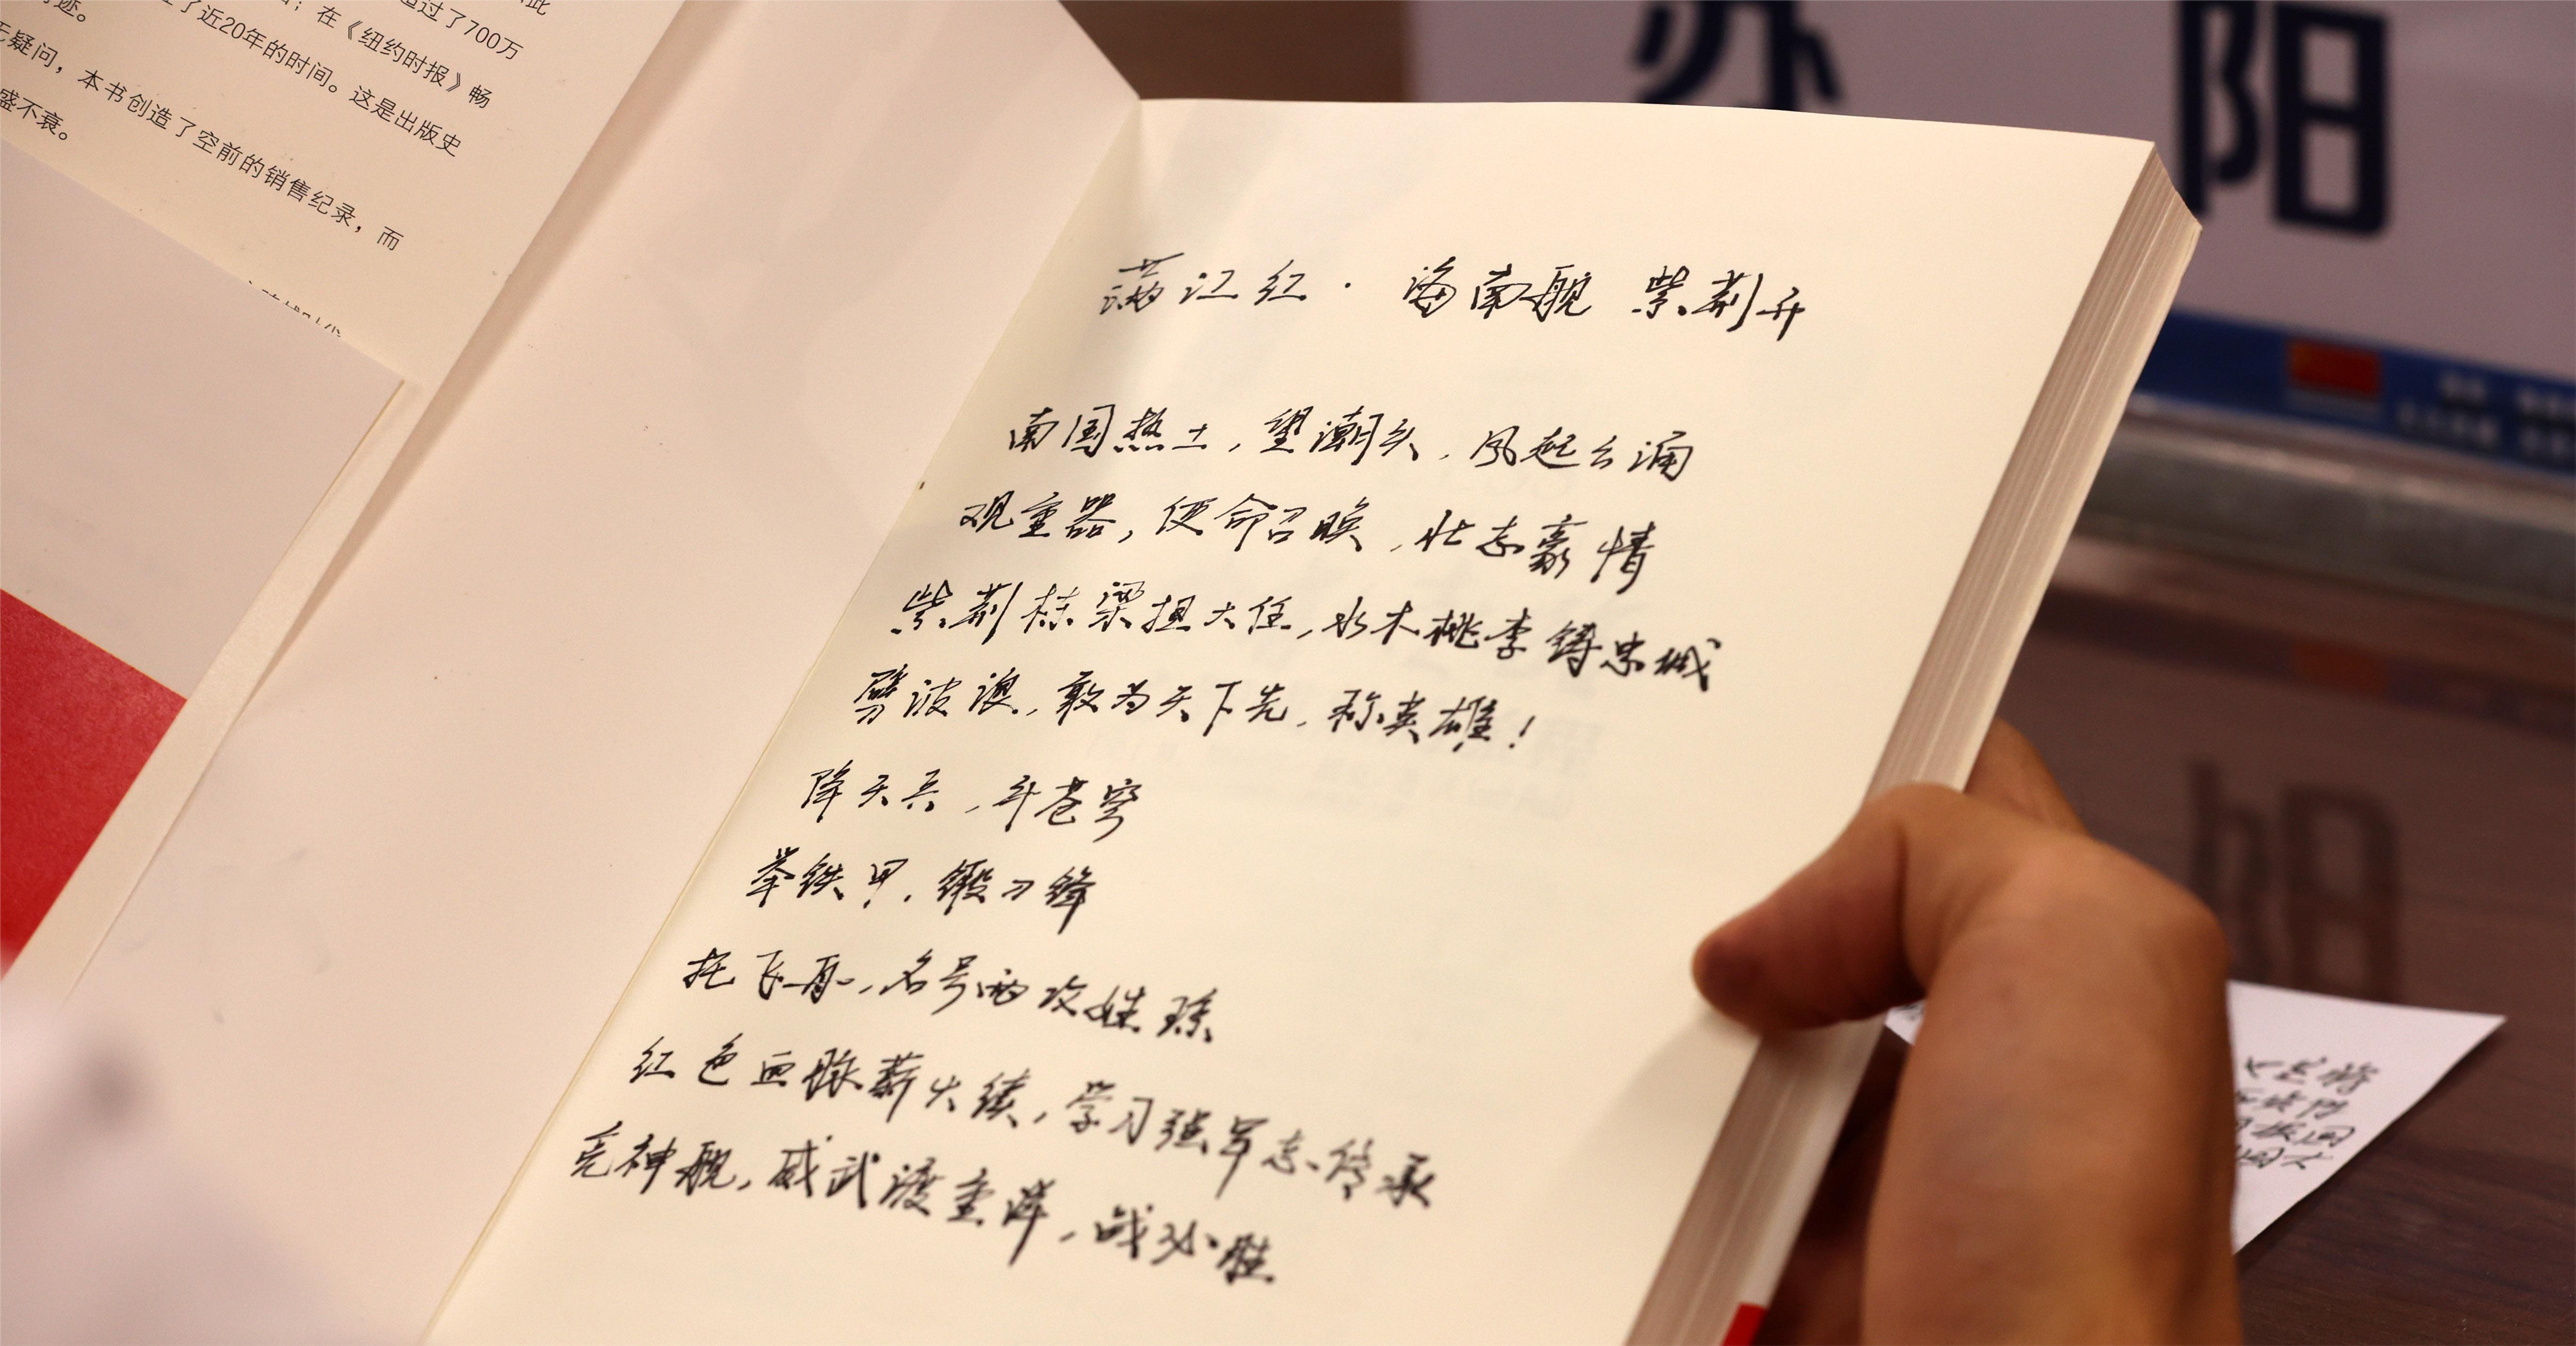 超过了700万
了近20年的时间。这是出版史
；在《纽约时报》畅
无疑问，本书创造了空前的销售纪录，而
盛不衰。
阳
满江红·海南舰 紫荆升
南国热土，望潮头，风起云涌
观重器，使命召唤，壮志豪情
紫荆栋梁担大任，水木桃李铸忠诚
劈波浪，敢为天下先，称英雄！
降天兵，斗苍穹
举铁甲，锻刀锋
托飞舟，名号两次姓琼
红色血脉薪火续，学习强军志传承
亮神舰，威武渡重洋，战必胜